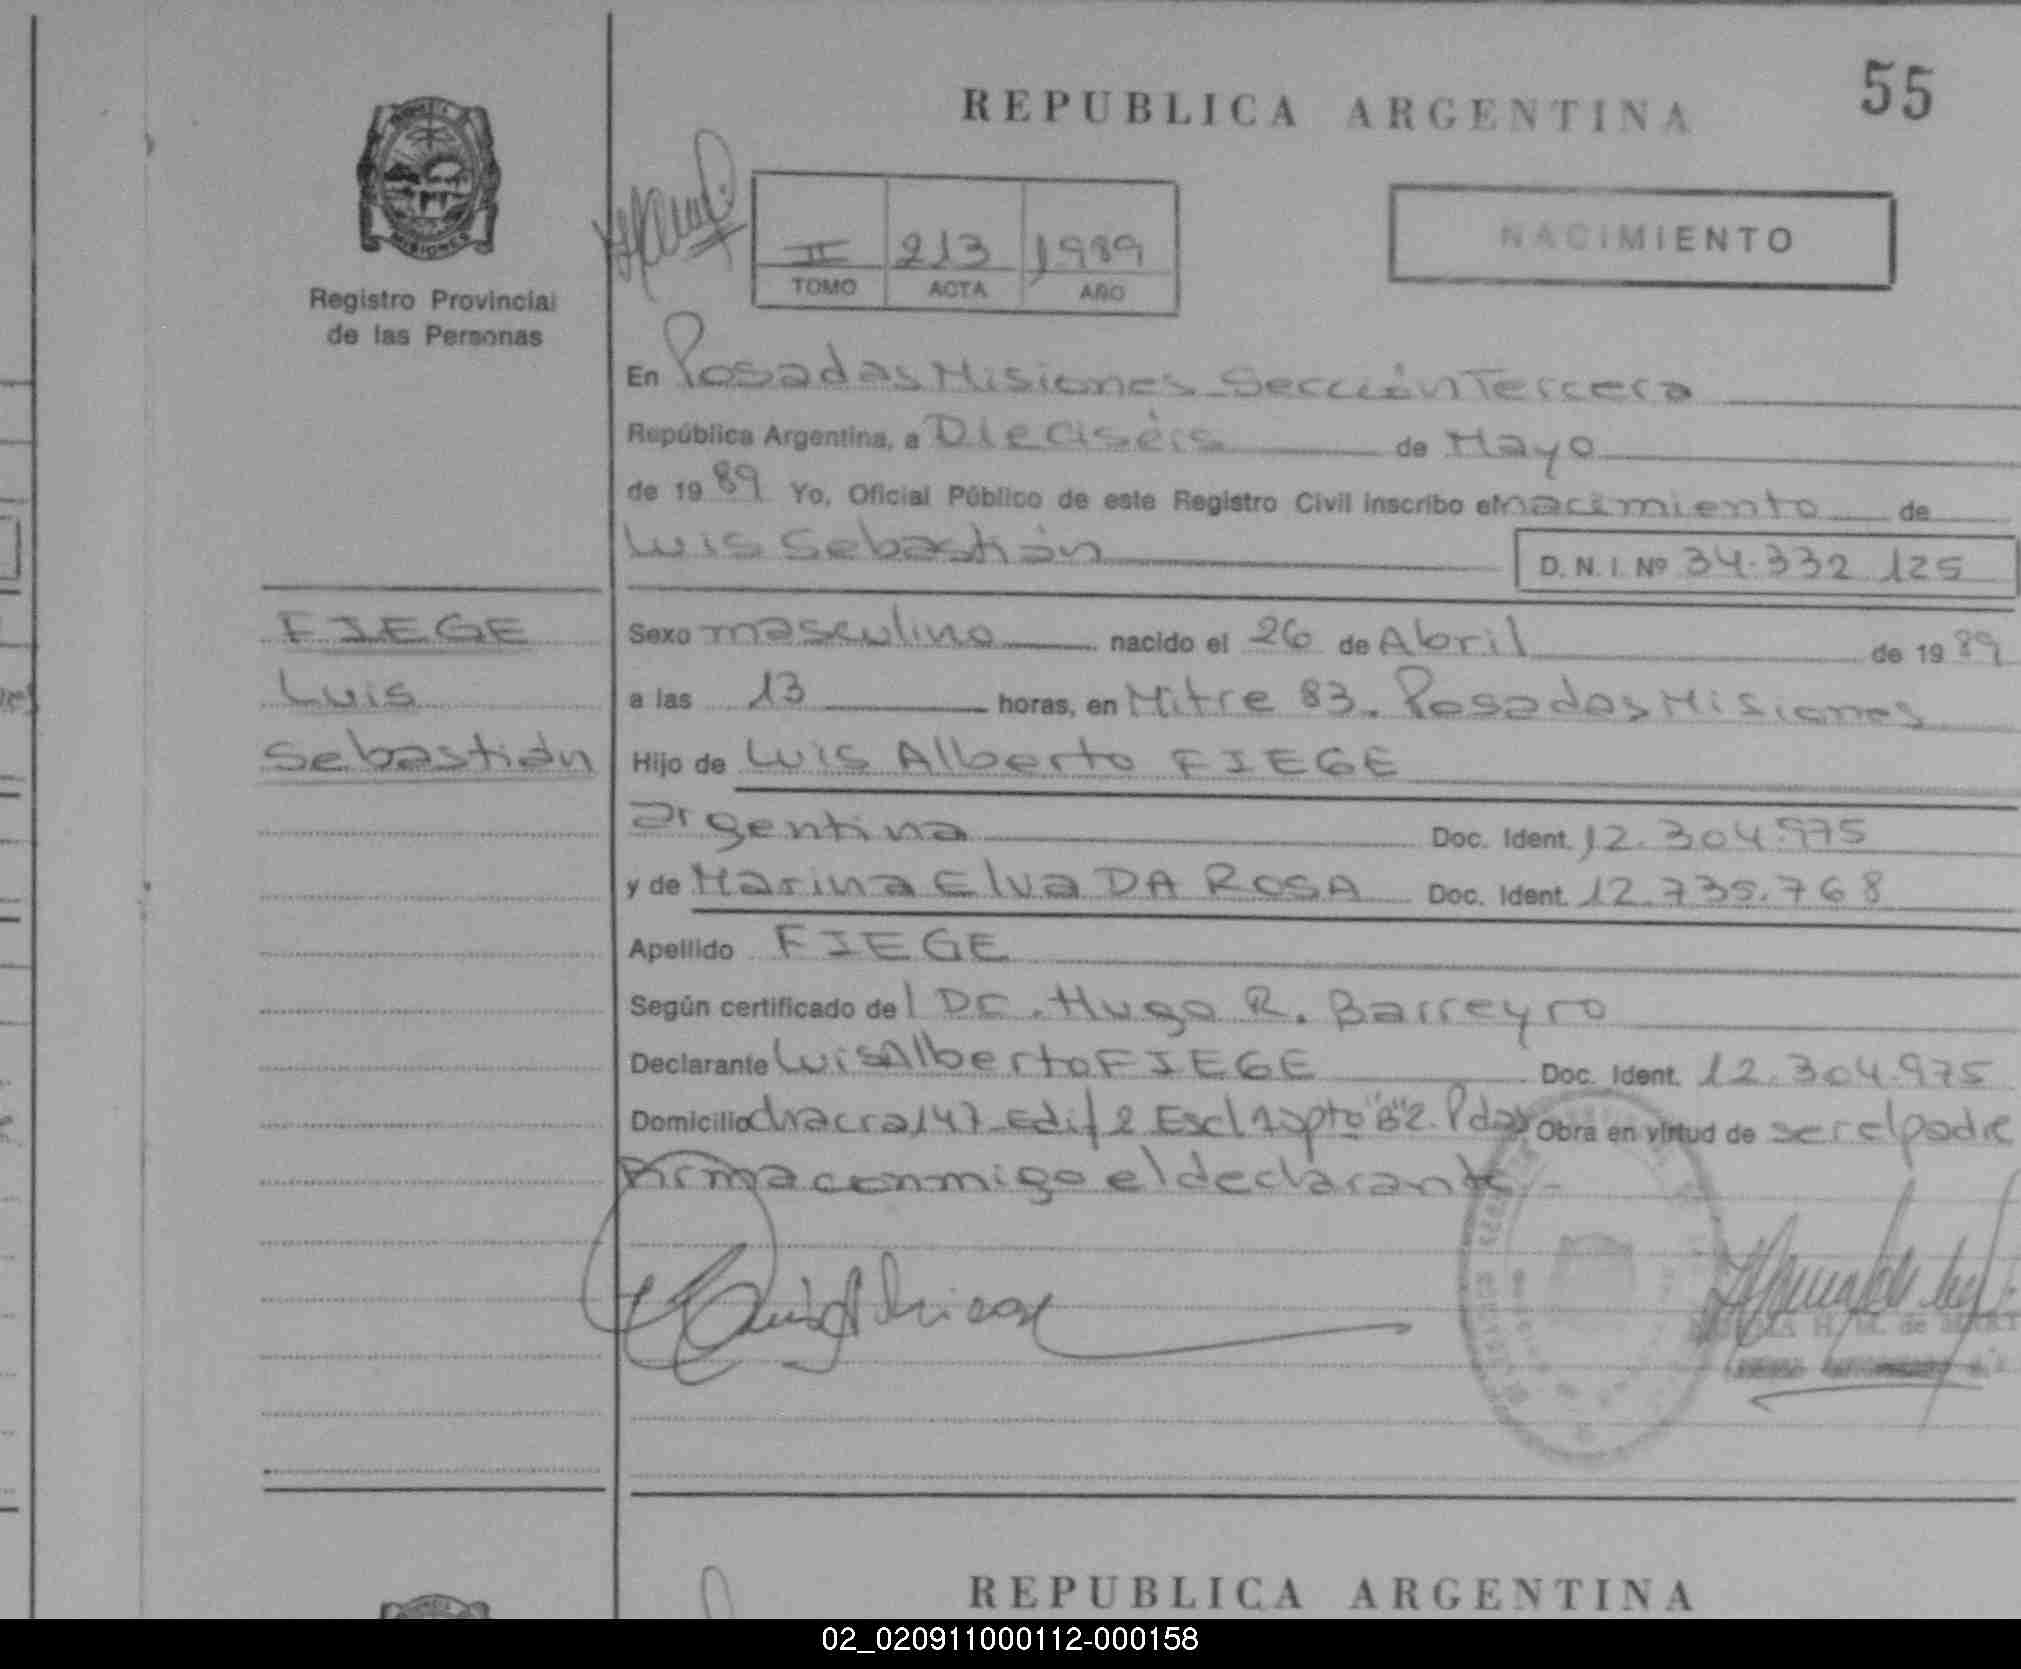 55
REPUBLICA ARGENTINA
MISIONES
Registro Provincial
de las Personas
II 213 1989
TOMO ACTA AÑO
NACIMIENTO
En Posadas Misiones Sección Tercera
República Argentina, a Dieciséis de Mayo
de 1989 Yo, Oficial Público de este Registro Civil inscribo el nacimiento de
Luis Sebastián D. N. I. Nº 34.332.125
FIEGE
Luis
Sebastián
Sexo masculino nacido el 26 de Abril de 1989
a las 13 horas, en Mitre 83. Posadas Misiones
Hijo de Luis Alberto FIEGE
argentina Doc. Ident. 12.304.975
y de Marina Elva DA ROSA Doc. Ident. 12.735.768
Apellido FIEGE
Según certificado del Dr. Hugo R. Barreyro
Declarante Luis Alberto FIEGE Doc. Ident. 12.304.975
Domicilio chacra 147 Edif 2 Esc 1 Dpto "B" 2. Pdas Obra en virtud de ser el padre
Firma conmigo el declarante.-
H. M. de
REPUBLICA ARGENTINA
02_020911000112-000158